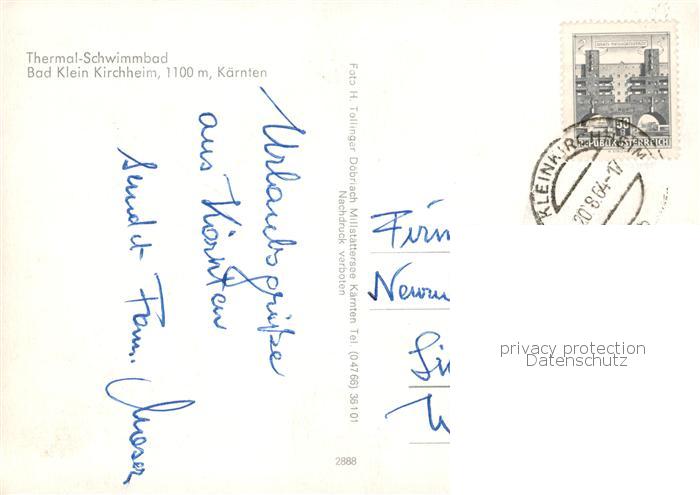 Thermal-Schwimmbad
Bad Klein Kirchheim, 1100 m, Kärnten
Urlaubsgrüße
aus Kärnten
sendet Fam. Moser
Foto H. Tollinger Döbriach Millstättersee Kärnten Tel. (04766) 36101
Nachdruck verboten
2888
50
REPUBLIK ÖSTERREICH
KLEINKIRCHHEIM
20.8.64-17
Firm
privacy protection
Datenschutz